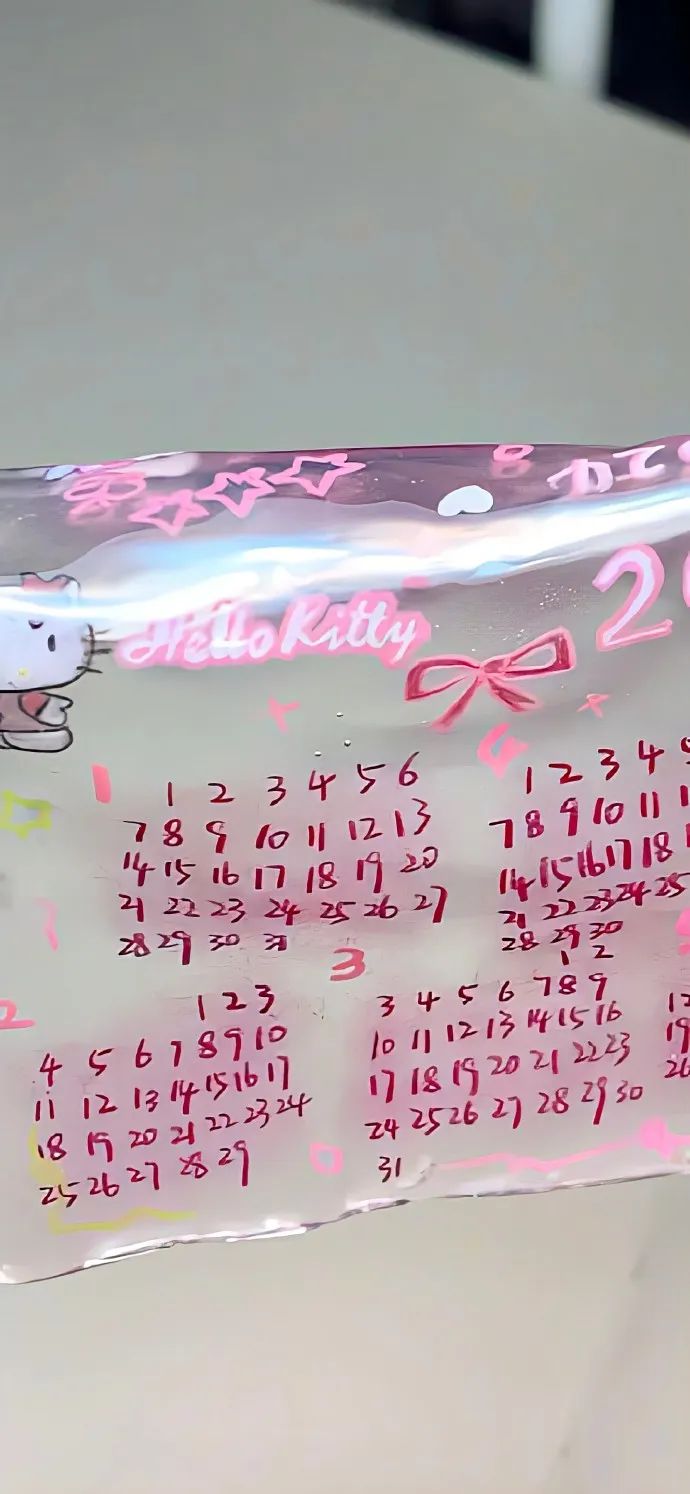 Hello Kitty
2
1
1 2 3 4 5 6
7 8 9 10 11 12 13
14 15 16 17 18 19 20
21 22 23 24 25 26 27
28 29 30 31
4
1 2 3 4
7 8 9 10 11
14 15 16 17 18
21 22 23 24 25
28 29 30
2
1 2 3
4 5 6 7 8 9 10
11 12 13 14 15 16 17
18 19 20 21 22 23 24
25 26 27 28 29
3
1 2
3 4 5 6 7 8 9
10 11 12 13 14 15 16
17 18 19 20 21 22 23
24 25 26 27 28 29 30
31
12
19
26